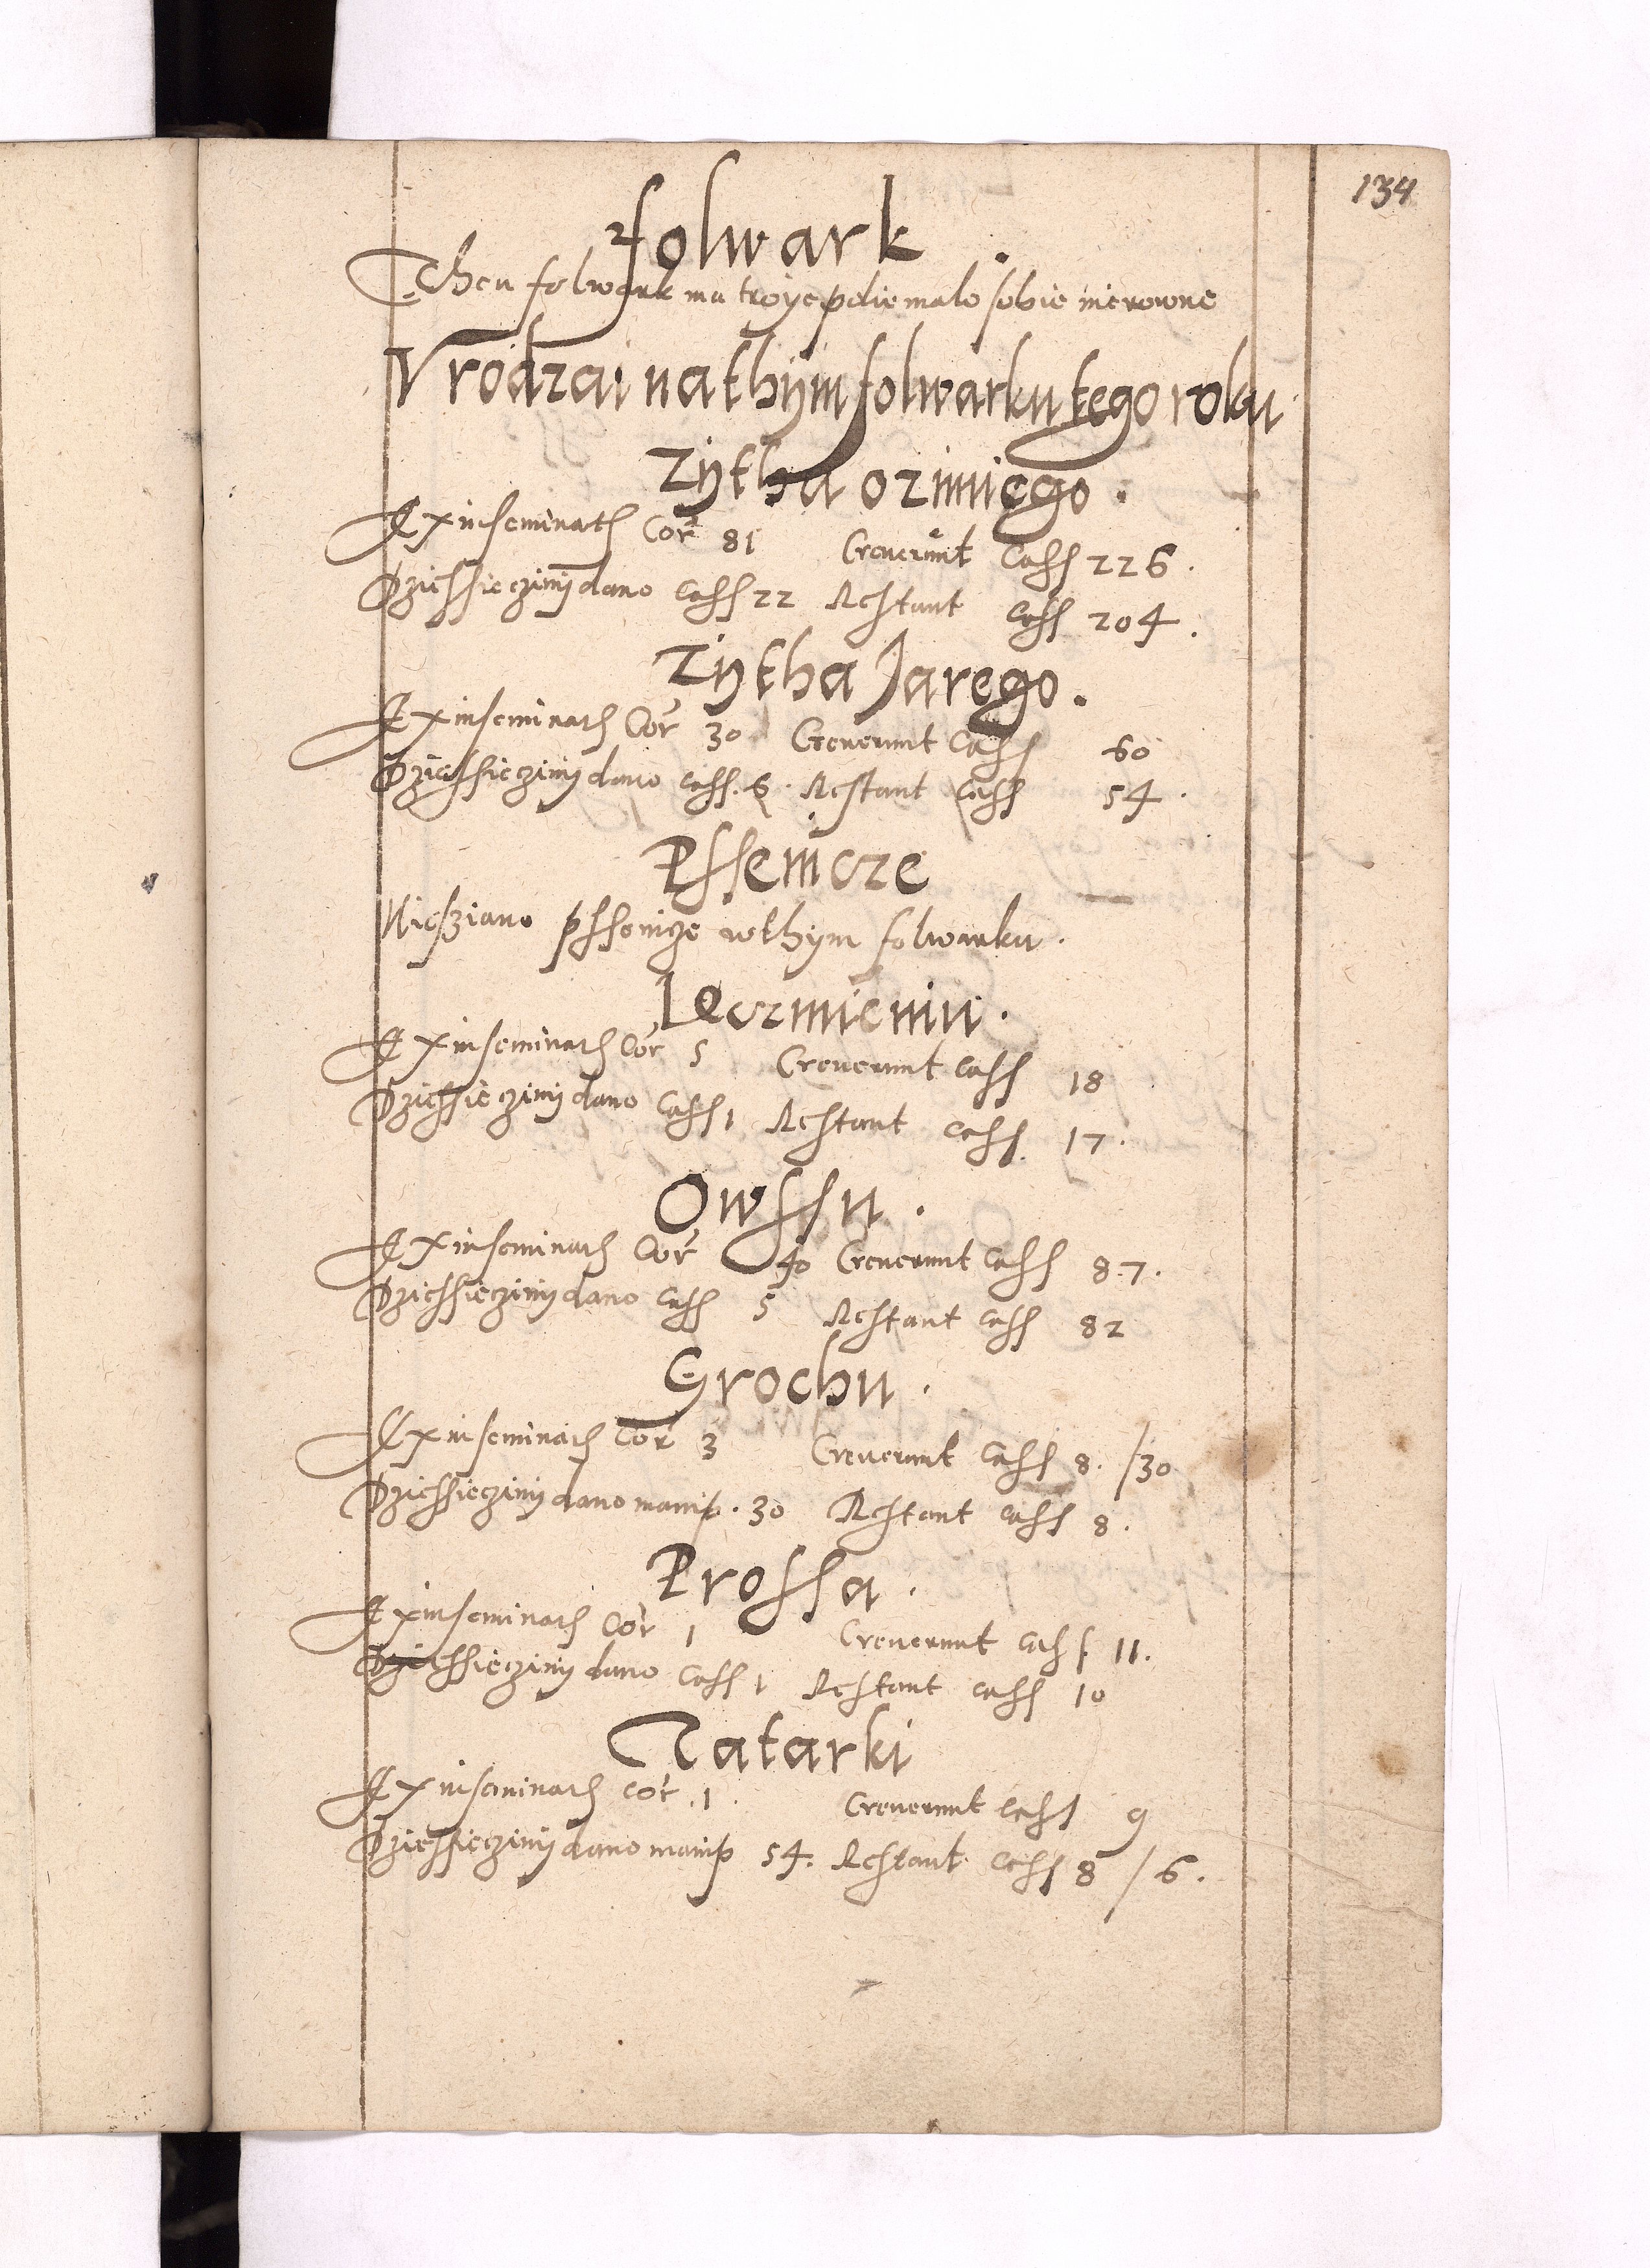 134
folwark
Then folwark ma troye polie malo sobie nierowne
Vrodzai na thym folwarku tego roku
Zytha ozimiego.
Ex inseminatis Cor 81 Creuerunt Cass 226.
Dziessieczinÿ dano Cass 22 Restant Cass 204.
Zytha Jarego.
Ex inseminatis Cor 30 Creuerunt Cass 60
Dziessieczinÿ dano cass. 6. Restant Cass 54.
Pssenicze
Niesziano psseniçze w thym folwarku.
Ieczmieniu.
Ex inseminatis Cor 5 Creuerunt cass 18
Dziessieczinÿ dano Cass 1 Restant cass 17.
Owssu.
Ex inseminatis Cor 40 Creuerunt Cass 87.
Dziessieczinÿ dano cass 5 Restant cass 82
Grochu.
Ex inseminatis Cor 3 Creuerunt Cass 8. /30
Dziessieczinÿ dano manip. 30 Restant cass 8.
Prossa.
Ex inseminatis Cor 1 Creuerunt cass 11.
Dziessieczinÿ dano Cass 1 Restant cass 10
Tatarki
Ex inseminatis cor. 1. Creuerunt cass 9
Dziessieczinÿ dano manip 54. Restant cass 8 / 6.